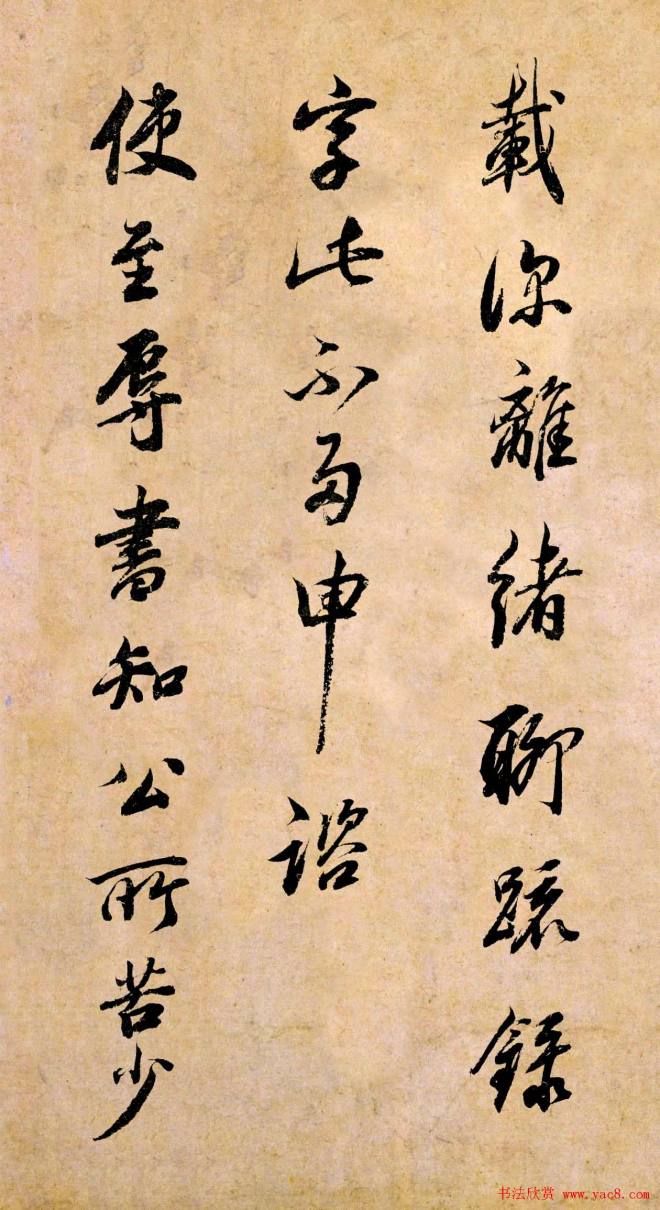 載深離緒聊錄
字此不多申諮
使至辱書知公所苦少
书法欣赏 www.yac8.com